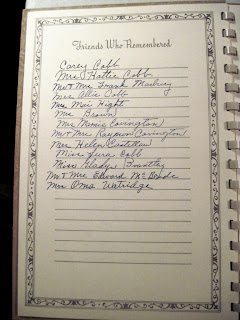 Friends Who Remembered
Carey Cobb
Mrs. Hattie Cobb
Mr & Mrs Frank Marbury
Mrs Allie Cobb
Mrs Mai Hight
Mrs Brown
Mrs Mamie Covington
Mr & Mrs Raymon Covington
Mrs Helen Castellaw
Miss Lura Cobb
Miss Gladys Brantley
Mr & Mrs Edward McBride
Mrs Oma Watridge